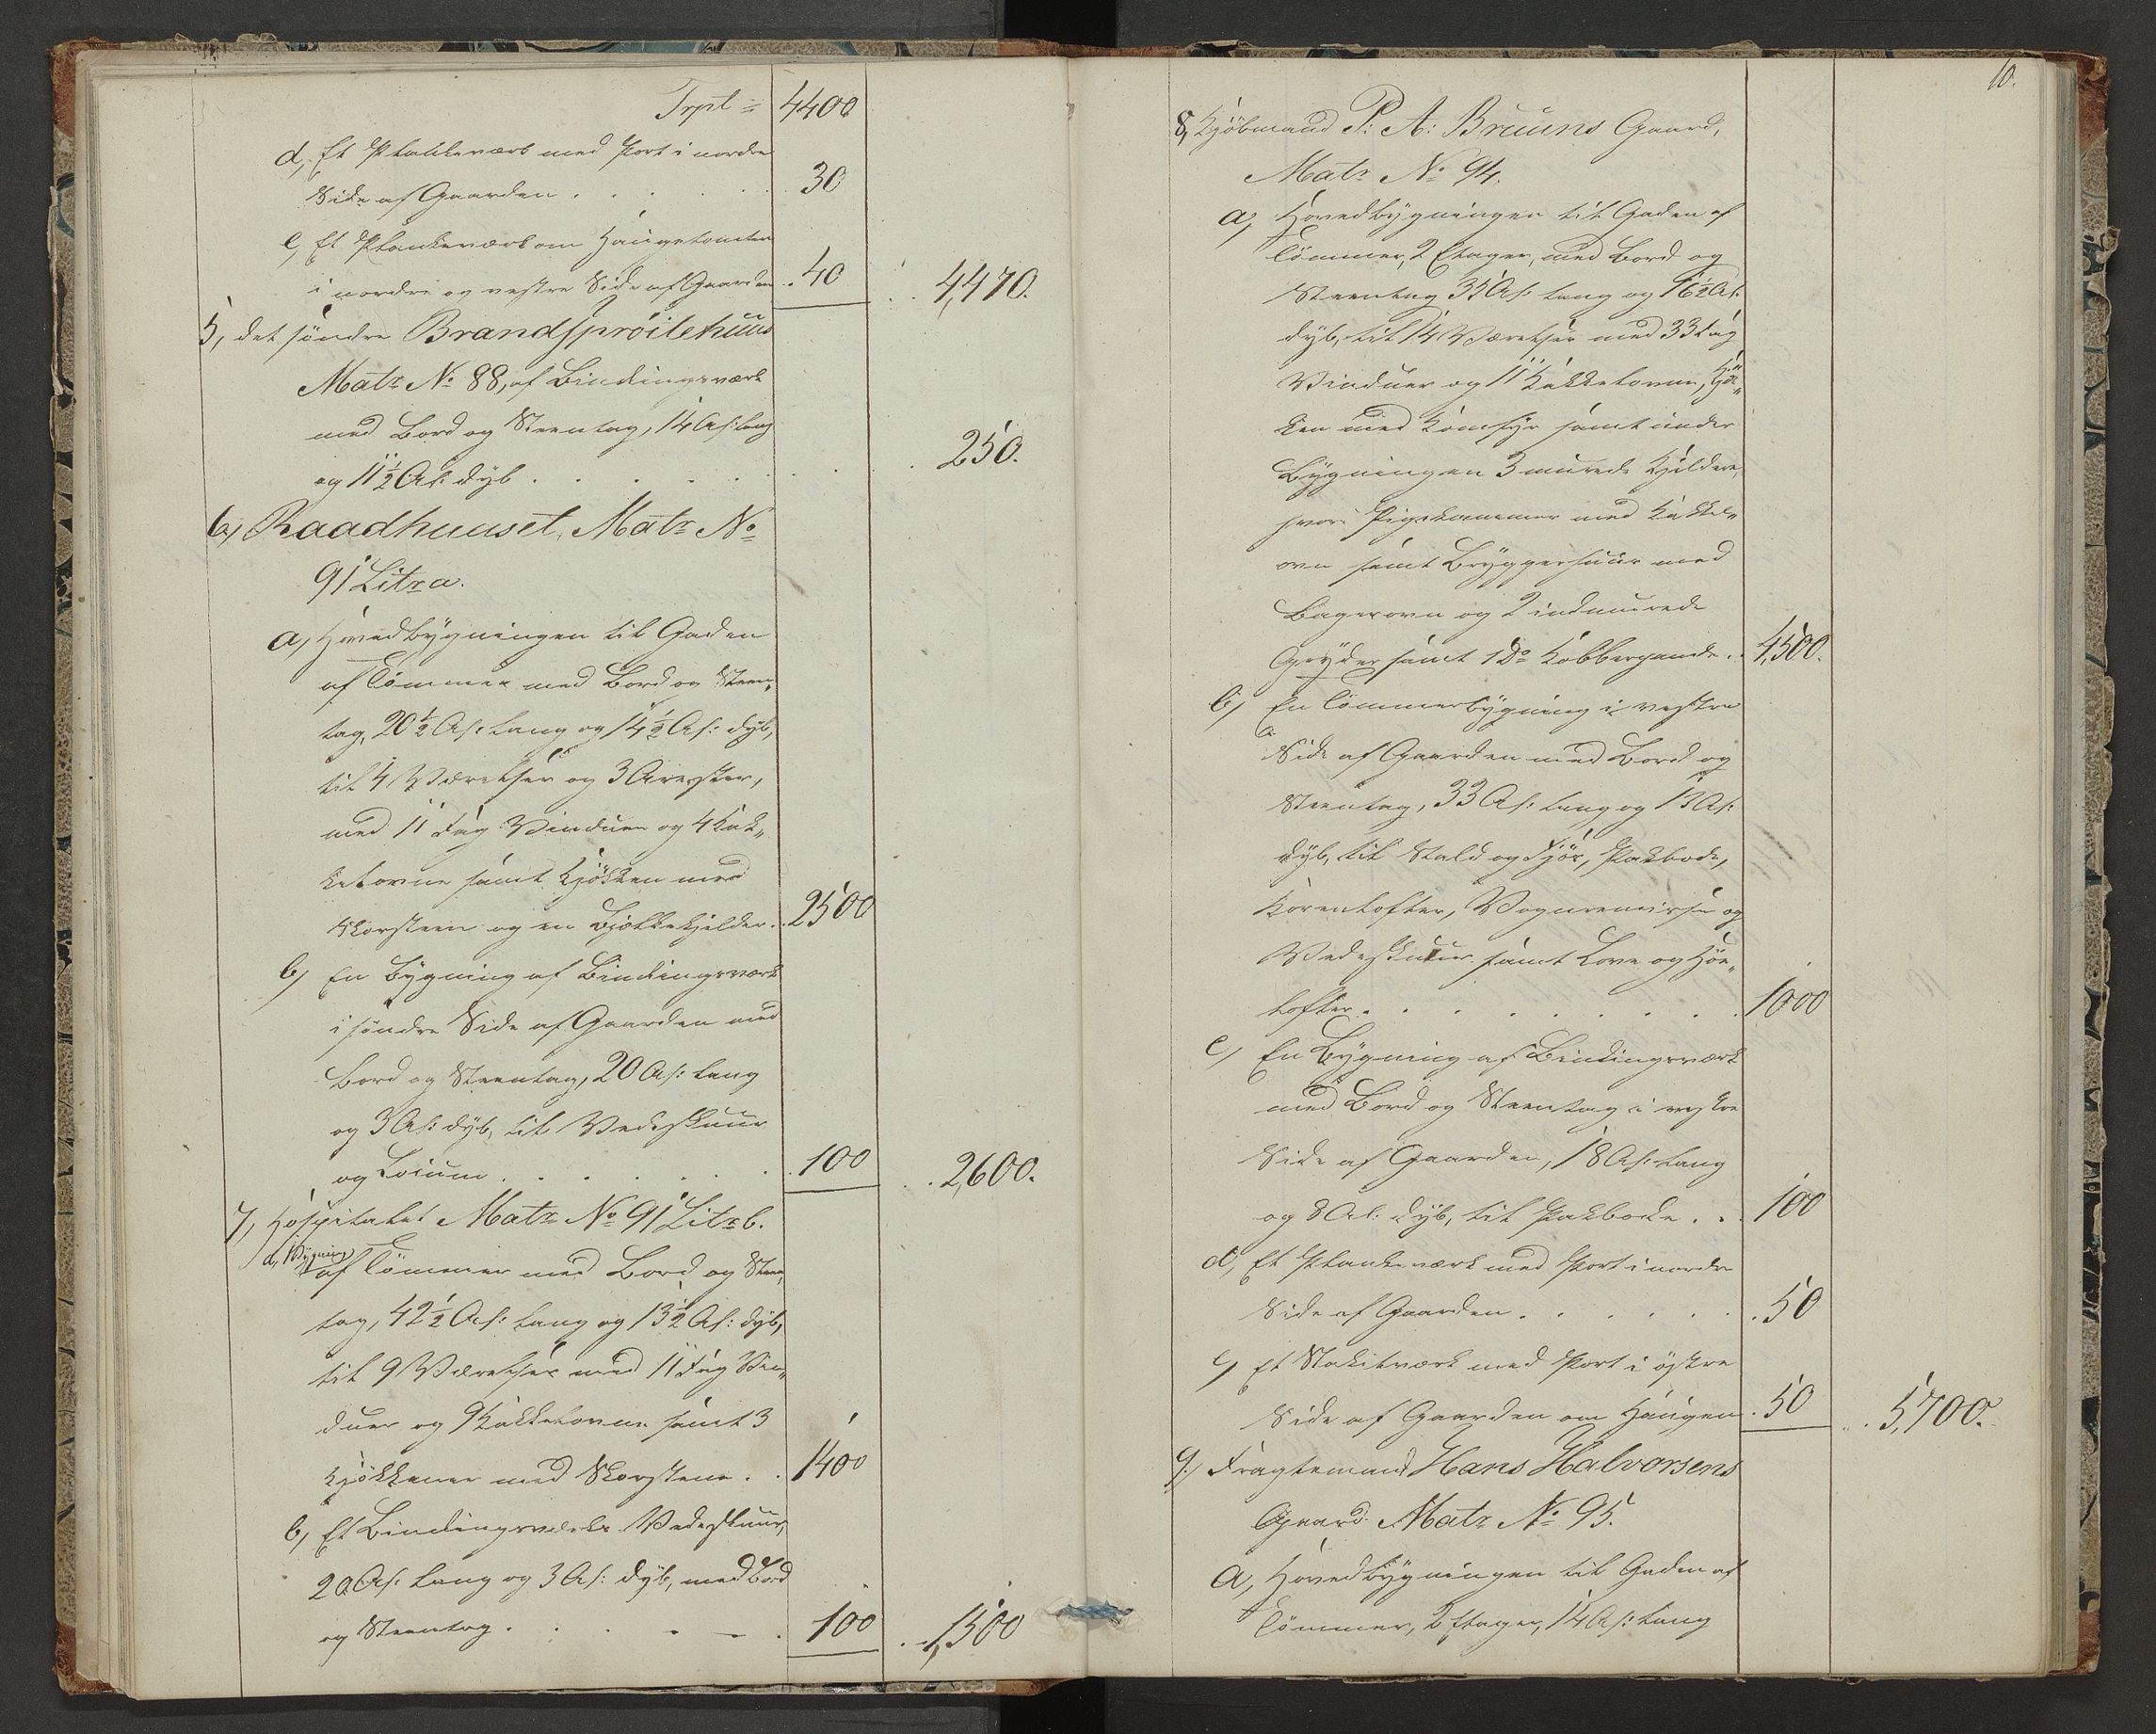 Trpt = 4400
d, Et Plankeværk med Port i nordre
Side af Gaarden . . . . . 30
e, Et Plankeværk om Haugetomten
i nordre og vestre Side af Gaarden . 40 . . 4,470.
5, det søndre Brandsprøitehuus
Matr No 88, af Bindingsværk
med Bord og Steentag, 14 Al: lang
og 11½ Al: dyb . . . . . . . 250.
6, Raadhuuset, Matr No
91 Litra.
a, Hovedbygningen til Gaden
af Tømmer med Bord og Steen„
tag, 20½ Al: lang og 14½ Al: dyb,
til 4 Værelser og 3 Arrester,
med 11 Fag Vinduer og 4 Kak„
kelovne samt Kjøkken med
Skorsteen og en Bjelkekjelder . 2500
b) En Bygning af Bindingsværk
i søndre Side af Gaarden med
Bord og Steentag, 20 Al: lang
og 3 Al: dyb, til Vedeskuur
og Locum . . . . . . 100 . . 2,600.
7, Hospitalet Matr No 91 Litr b.
a, 1 Bygning
af Tømmer med Bord og Steen„
tag, 42½ Al: lang og 13½ Al: dyb,
til 9 Værelser med 11 Fag Vin„
duer og 9 Kakkelovne samt 3
Kjøkkener med Skorstene . . 1400
b, Et Bindingsværks Vedeskuur,
20 Al: lang og 3 Al: dyb, med Bord
og Steentag . . . . . . 100 . . 1,500
10.
8, Kjøbmand P: A: Bruuns Gaard,
Matr No 94.
a, Hovedbygningen til Gaden af
Tømmer, 2 Etager, med Bord og
Steentag 35 Al: lang og 16½ Al:
dyb, til 14 Værelser med 33 Fag
Vinduer og 11 Kakkelovne, Kjøk„
ken med Komfyr samt under
Bygningen 3 murede Kjeldere,
hvori Pigekammer med Kakkel„
ovn samt Bryggerhuus med
Bagerovn og 2 indmurede
Gryder samt 1 Do Kobberpande . . 4,500.
b) En Tømmerbygning i vestre
Side af Gaarden med Bord og
Steentag, 33 Al: lang og 13 Al:
dyb, til Stald og Fjøs, Pakbode,
Kornlofter, Vogn og
Vedeskuur samt Love og Høe„
lofter . . . . . . . . . 1000
c) En Bygning af Bindingsværk
med Bord og Steentag i vestre
Side af Gaarden, 18 Al: lang
og 8 Al: dyb, til Pakbode . . . 100
d, Et Plankeværk med Port i nordre
Side af Gaarden . . . . . . 50
e, Et Stakitværk med Port i østre
Side af Gaarden om Haugen . 50 . . 5,700.
9.) Fragtemand Hans Halvorsens
Gaard. Matr No 95.
a, Hovedbygningen til Gaden af
Tømmer, 2 Etager, 14 Al: lang